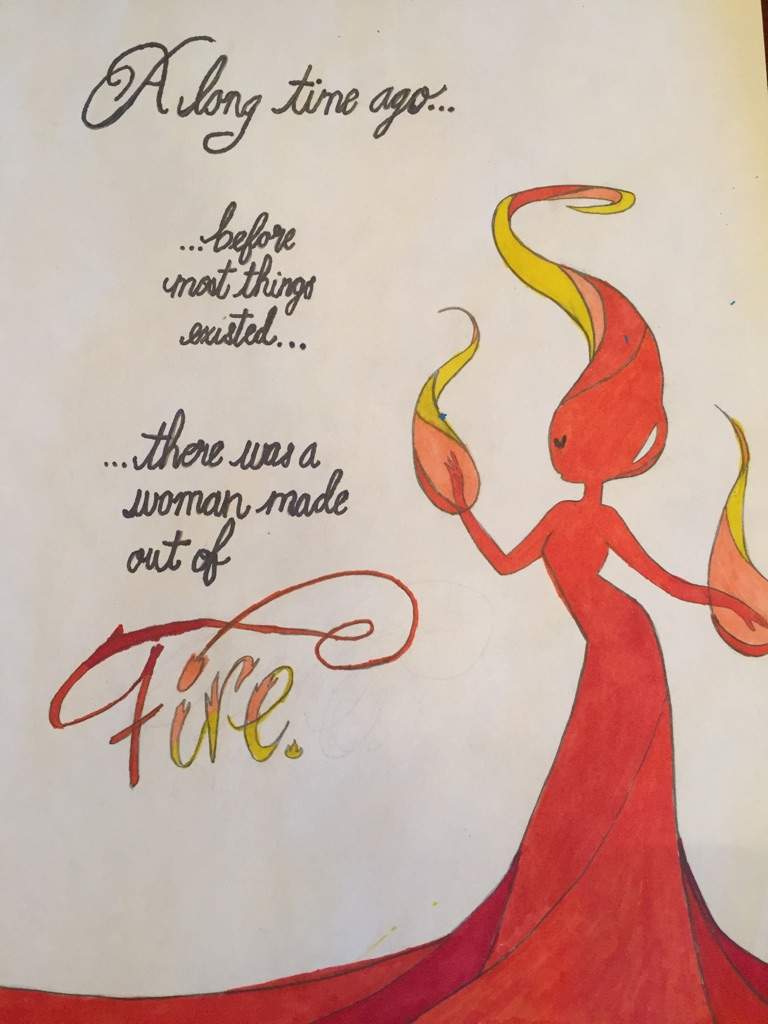 A long time ago...
...before
most things
existed...
...there was a
woman made
out of
Fire.